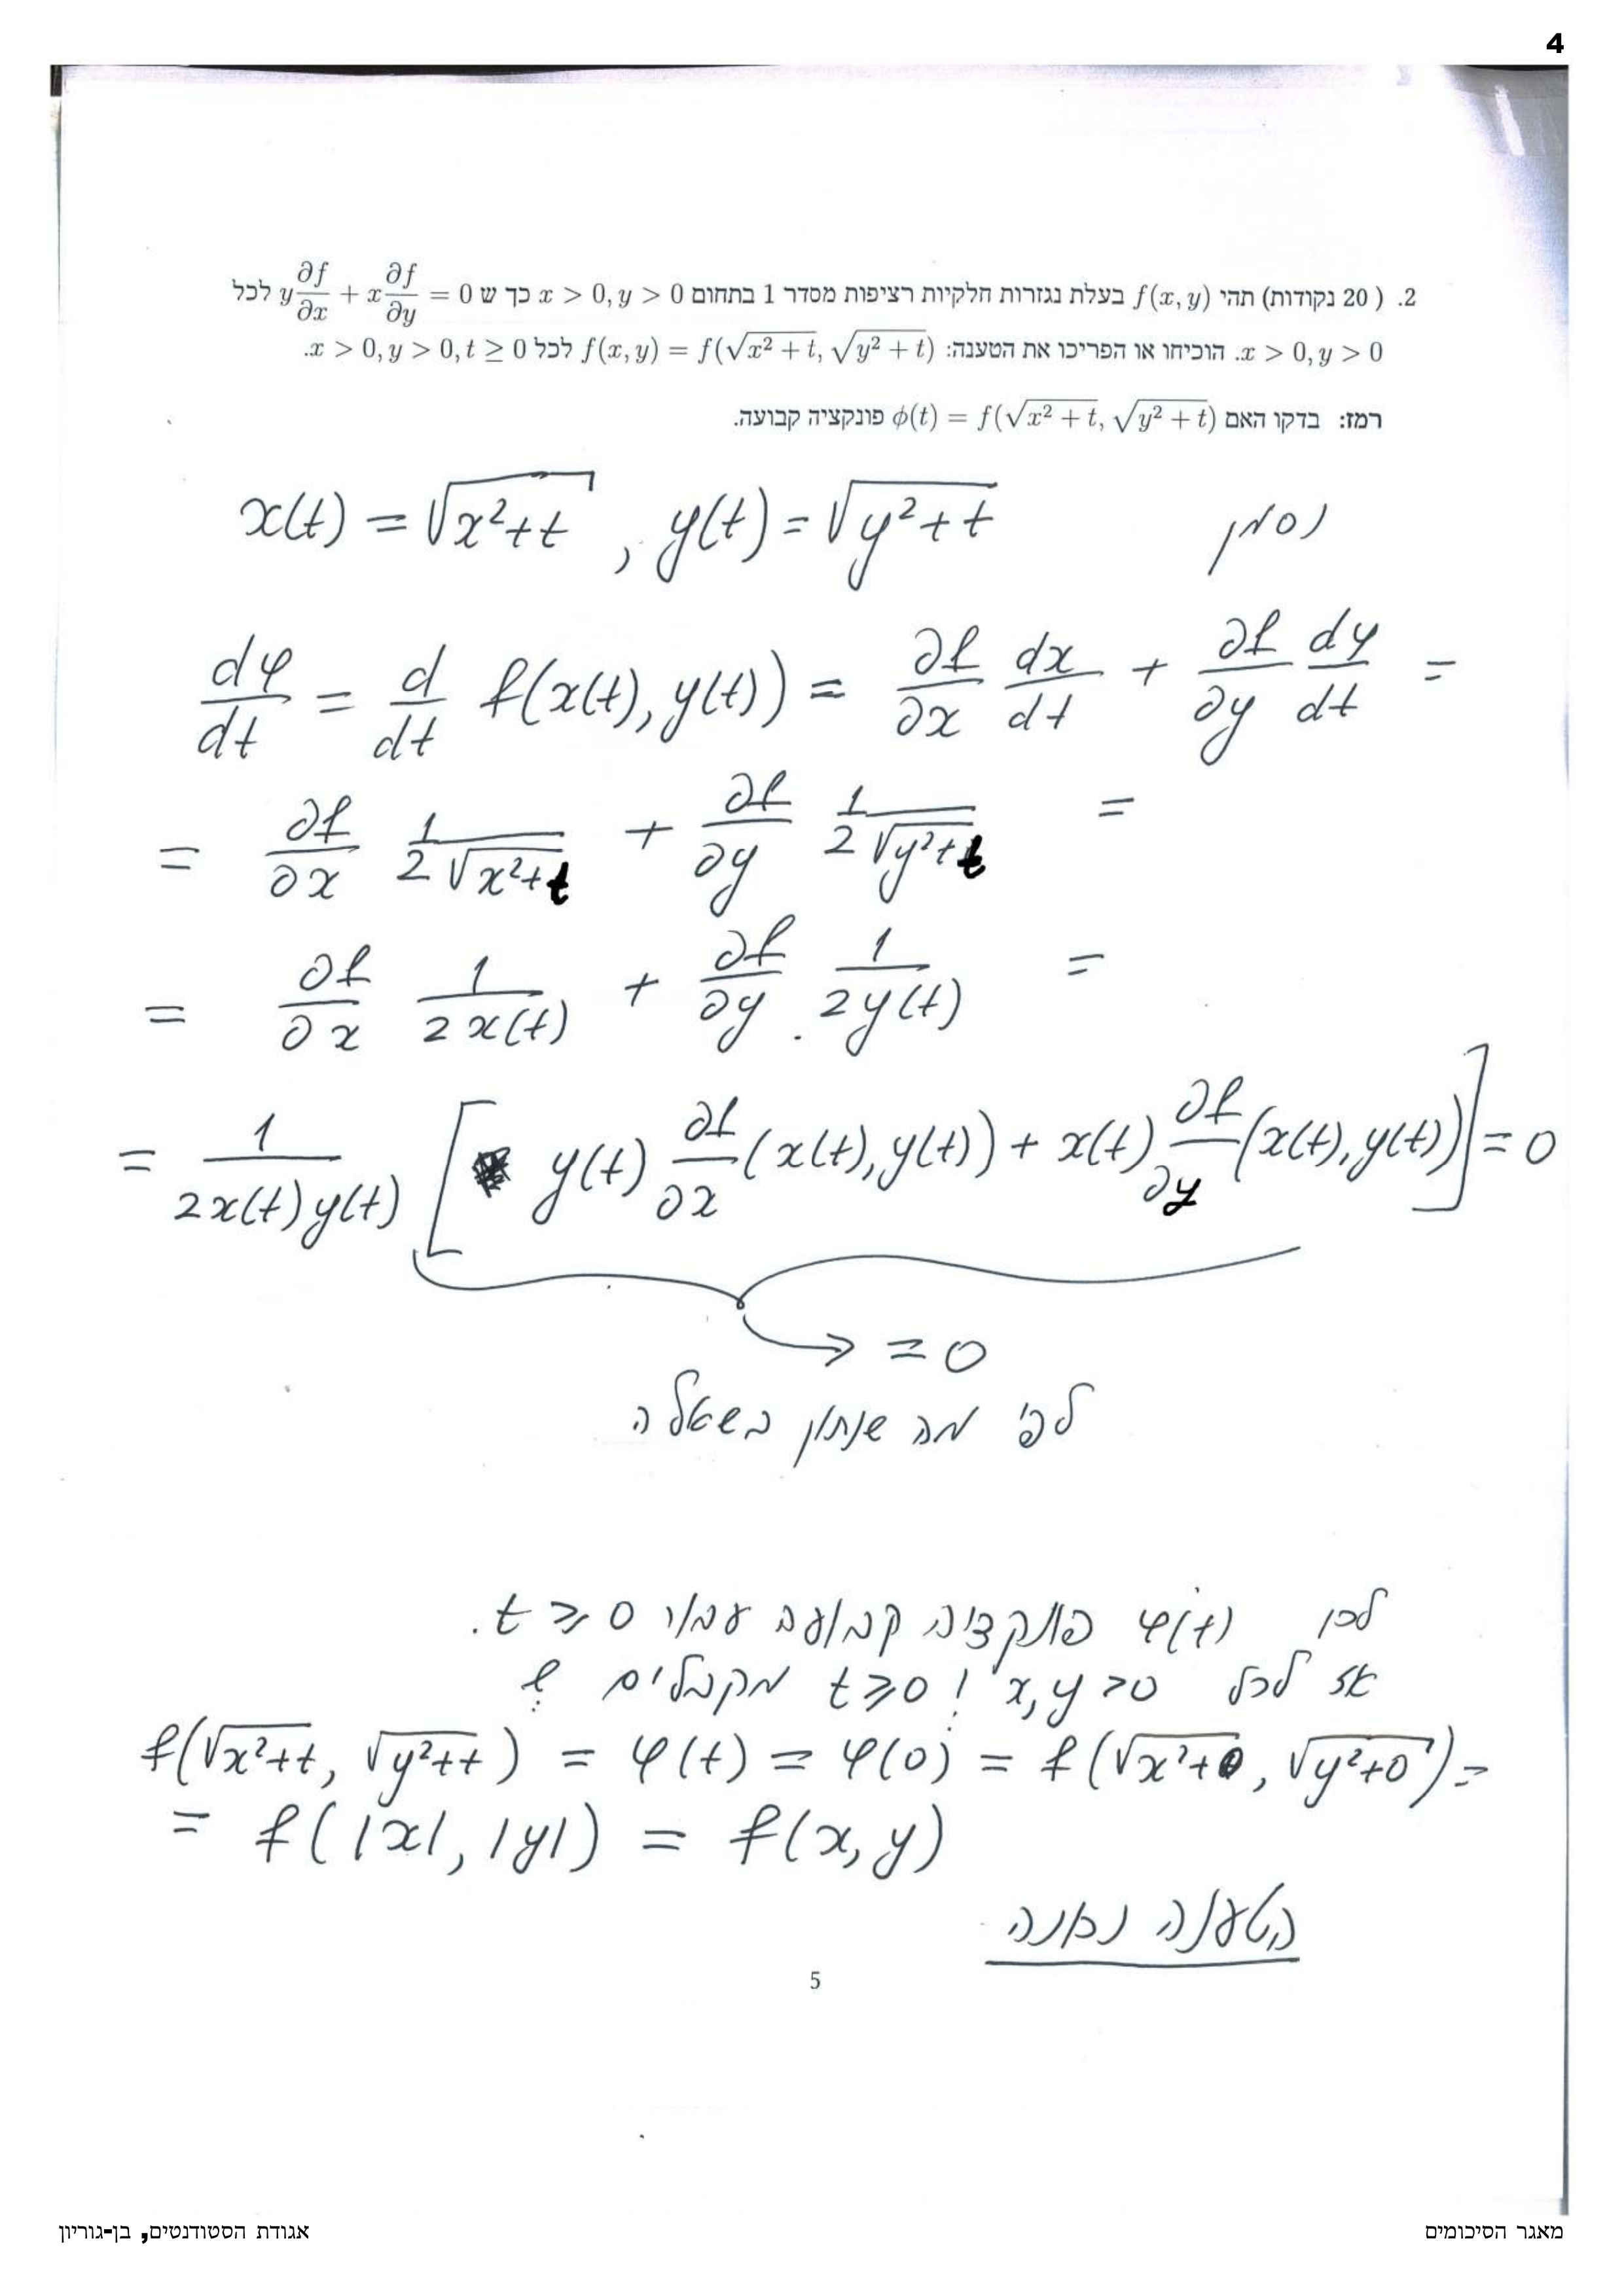 4
2. ( 20 נקודות) תהי f(x, y) בעלת נגזרות חלקיות רציפות מסדר 1 בתחום x > 0, y > 0 כך ש y ∂f/∂x + x ∂f/∂y = 0 לכל
x > 0, y > 0. הוכיחו או הפריכו את הטענה: f(x, y) = f(√(x² + t), √(y² + t)) לכל x > 0, y > 0, t ≥ 0.
רמז: בדקו האם φ(t) = f(√(x² + t), √(y² + t)) פונקציה קבועה.
נסמן x(t) = √(x²+t) , y(t) = √(y²+t)
dφ/dt = d/dt f(x(t), y(t)) = ∂f/∂x dx/dt + ∂f/∂y dy/dt =
= ∂f/∂x 1/(2√(x²+t)) + ∂f/∂y 1/(2√(y²+t)) =
= ∂f/∂x 1/(2x(t)) + ∂f/∂y · 1/(2y(t)) =
= 1/(2x(t)y(t)) [ y(t) ∂f/∂x (x(t), y(t)) + x(t) ∂f/∂y (x(t), y(t)) ] = 0
→ = 0
לפי מה שנתון בשאלה
לכן φ(t) פונקציה קבועה עבור t ≥ 0.
אז לכל x, y > 0 ו t ≥ 0 מקבלים ש
f(√(x²+t), √(y²+t)) = φ(t) = φ(0) = f(√(x²+0), √(y²+0)) =
= f(|x|, |y|) = f(x, y)
הטענה נכונה
5
מאגר הסיכומים
אגודת הסטודנטים, בן-גוריון